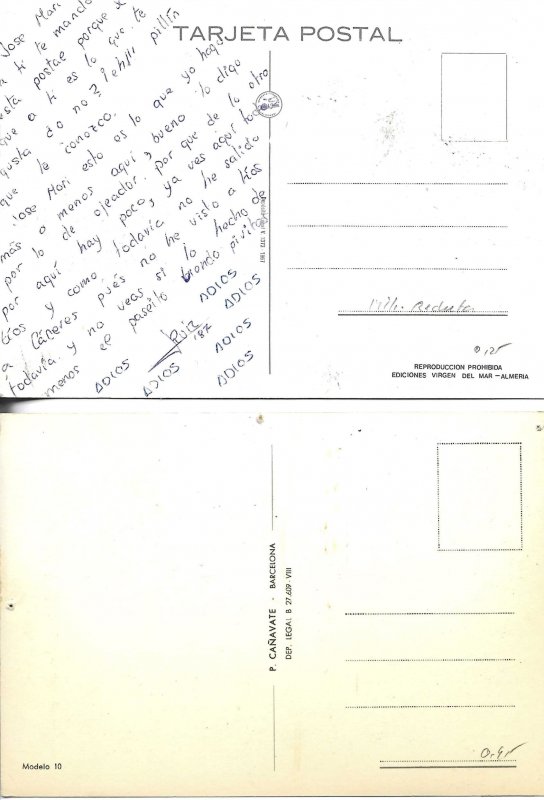 TARJETA POSTAL
Jose Mari
a ti te mando
esta postae porque se
que a ti es lo que te
gusta do no? ¡ehh! pillín
que te conozco.
Jose Mari esto es lo que yo hago
más o menos aquí, bueno lo digo
por lo de ojeador. por que de lo otro
por aquí hay poco, ya ves aquí todos
tíos y como todavía no he salido
a Cáceres pués no he visto a tías
todavía y no veas si lo hecho de
menos el paseito
ADIOS
ADIOS
ADIOS
ADIOS
ADIOS
ADIOS
Ruiz
'87
0,25
REPRODUCCION PROHIBIDA
EDICIONES VIRGEN DEL MAR – ALMERIA
P. CAÑAVATE - BARCELONA
DEP. LEGAL B 27.609 - VIII
Modelo 10